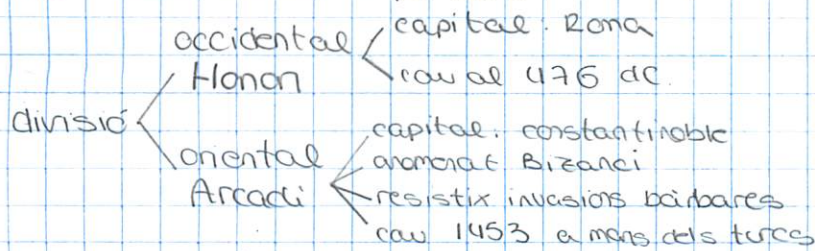 occidental
Honori
capital. Roma
cau al 476 dC.
divisió
oriental
Arcadi
capital. constantinoble
anomenat Bizanci
resistix invasions bàrbares
cau 1453 a mans dels turcs